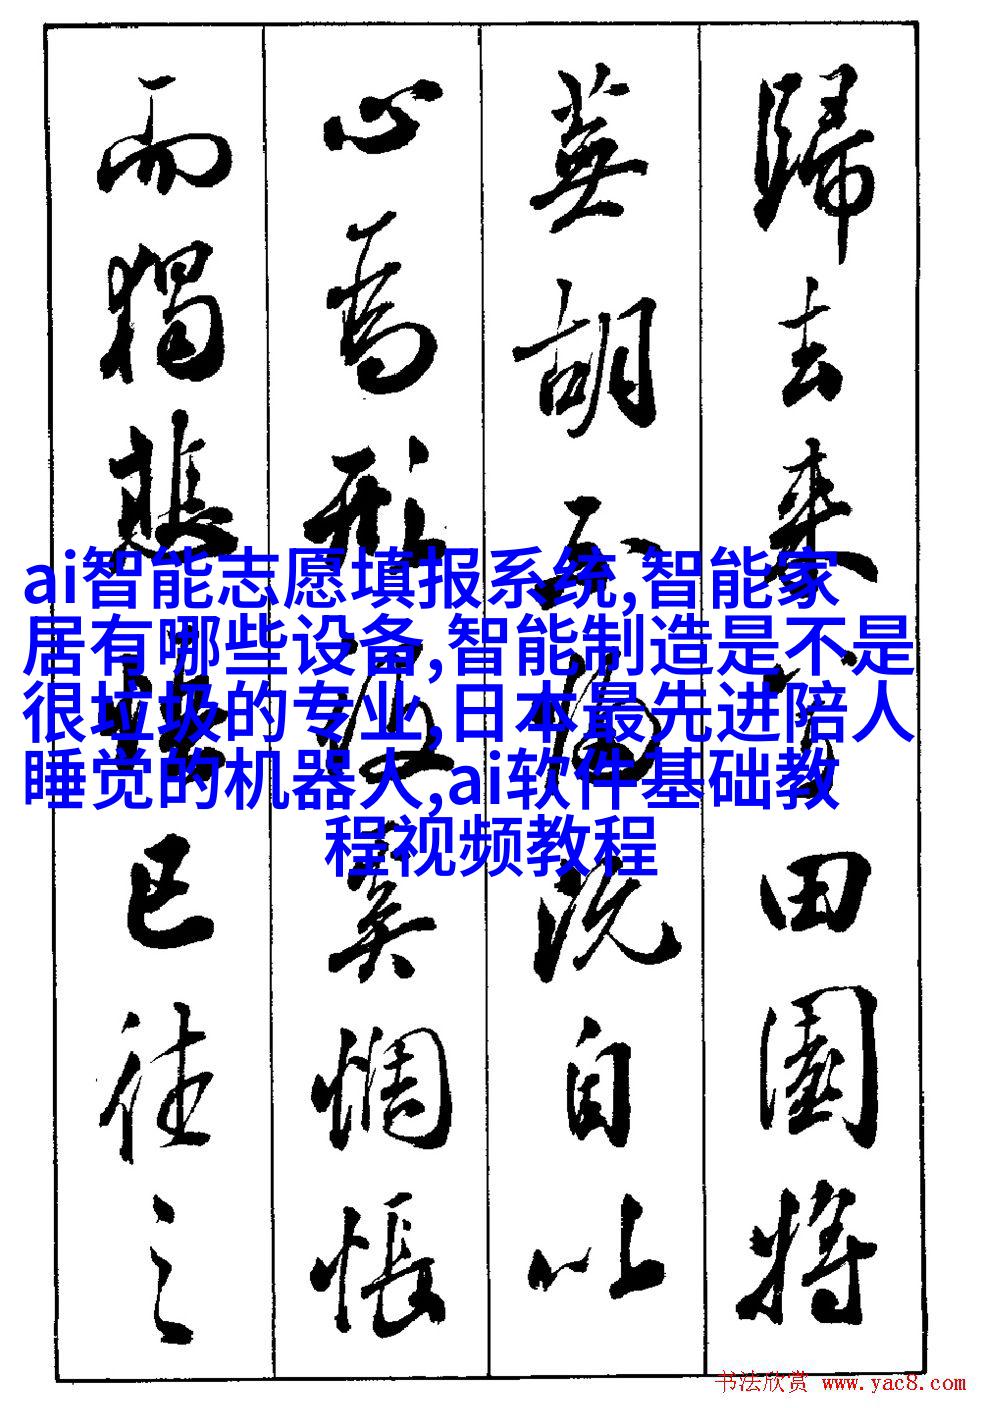 歸去来田園將
蕪胡不歸既自以
心為形役奚惆悵
而獨悲已往之
ai智能志愿填报系统,智能家
居有哪些设备,智能制造是不是
很垃圾的专业,日本最先进陪人
睡觉的机器人,ai软件基础教
程视频教程
书法欣赏 www.yac8.com